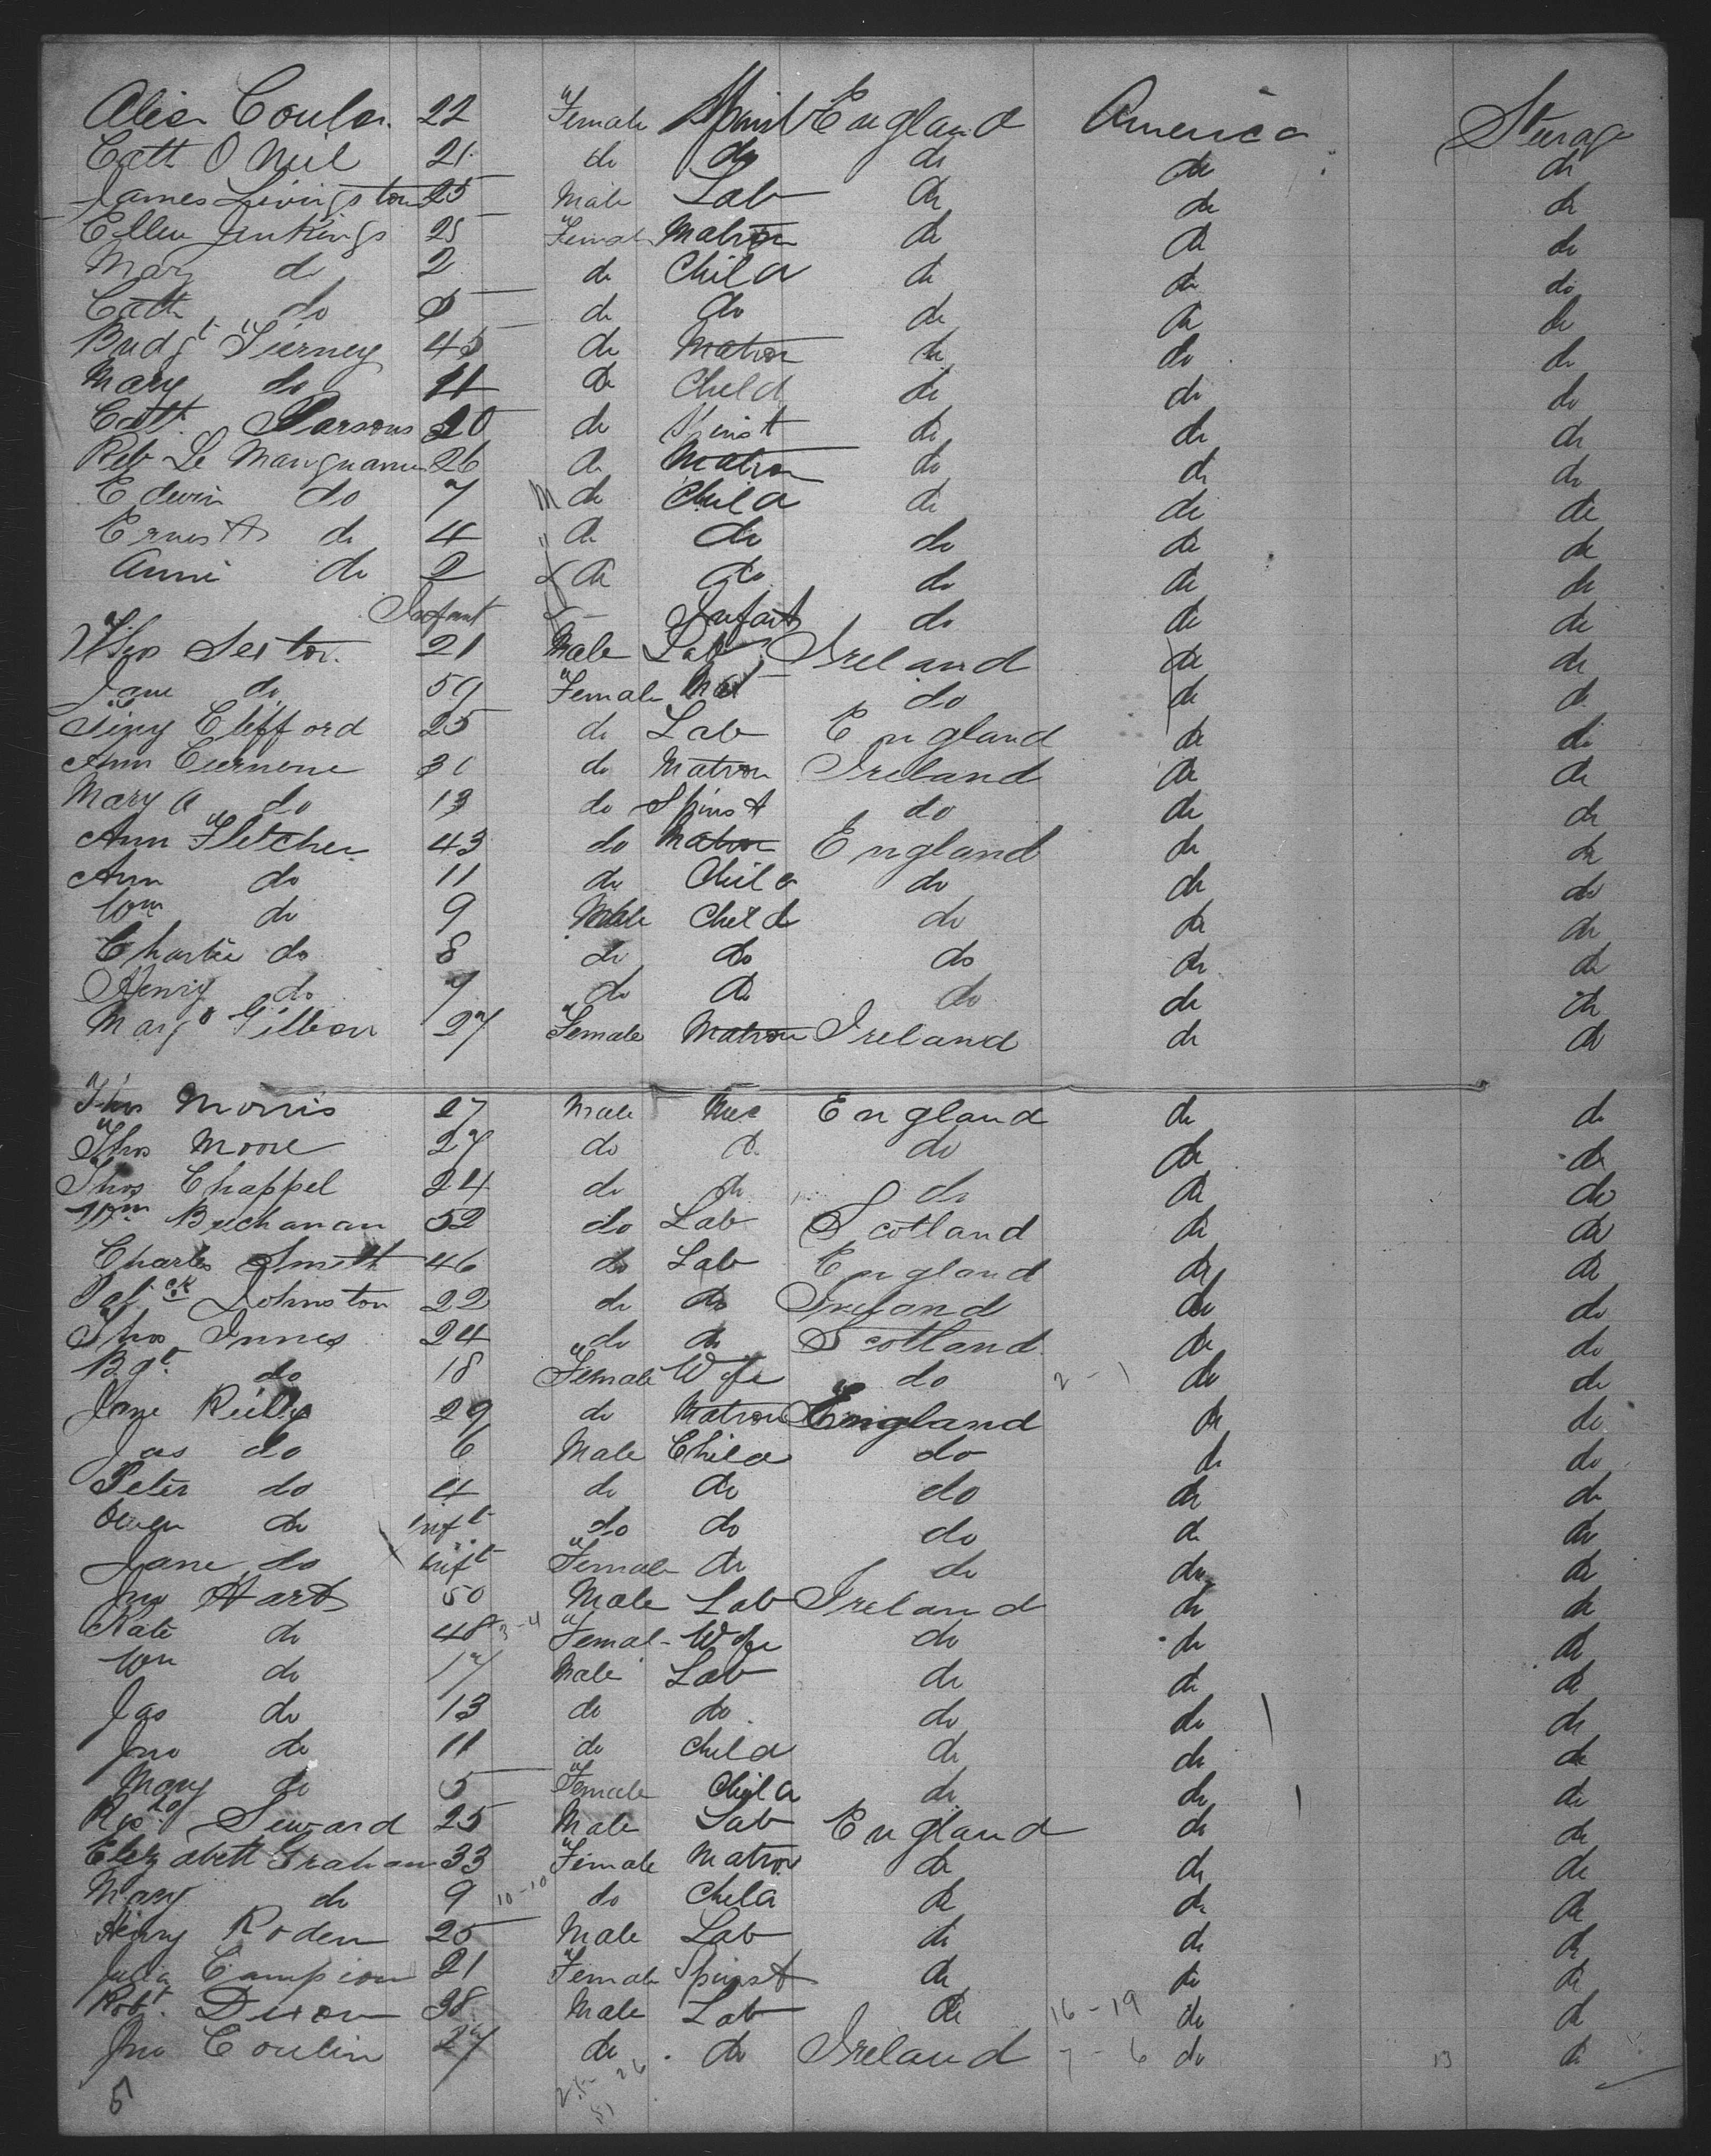 Alice 22 Female Spinst England America Steerage
Cath O Neil 21 do do do do do
James Livingston 25 Male Lab do do do
Ellen Jenkings 25 Female Matron do do do
Mary do 2 do Child do do do
Cath do do do do do do
Bridgt Tierney 45 do Matron do do do
Mary do 11 do Child do do do
Cath Parsons 20 do Spinst do do do
Reb Le 26 do Matron do do do
Edwin do 7 M do Child do do do
Ernest do 4 " do do do do do
Annie do 2 f do do do do do
Infant Infant do do do
Thos Sexton 21 Male Lab Ireland do do
Jane do 59 Female Mat do do do
Clifford 25 do Lab England do do
Ann 31 do Matron Ireland do do
Mary A do 13 do Spinst do do do
Ann Fletcher 43 do Matron England do do
Ann do 11 do Child do do do
Wm do 9 Male Child do do do
Charlie do 8 do do do do do
Henry do 7 do do do do do
Margt 27 Female Matron Ireland do do
Thos Morris 27 Male Mec England do do
Thos Moore 27 do do do do do
Thos Chappel 24 do do do do do
Wm Buchanan 52 do Lab Scotland do do
Charles Smith 46 do Lab England do do
Patck Johnston 22 do do Ireland do do
Thos Innes 24 do do Scotland do do
Bgt do 18 Female Wife do 2 - 1 do do
Jane Reilly 29 do Matron England do do
Jas do 6 Male Child do do do
Peter do 4 do do do do do
Owen do inft do do do do do
Jane do inft Female do do do do
Jno Hart 50 Male Lab Ireland do do
Kate do 48 3-4 Female Wife do do do
Wm do 17 Male Lab do do do
Jas do 13 do do do do do
Jno do 11 do Child do do do
Mary do 5 Female Child do do do
Richd Seward 25 Male Lab England do do
Elizabeth Graham 33 Female Matron do do do
Mary do 9 10-10 do Child do do do
Henry Roden 25 Male Lab do do do
Julia Campion 21 Female Spinst do do do
Robt Dixon 38 Male Lab do 16-19 do do
Jno Conlin 27 do do Ireland 7-6 do 13 do
5 25- 26
51